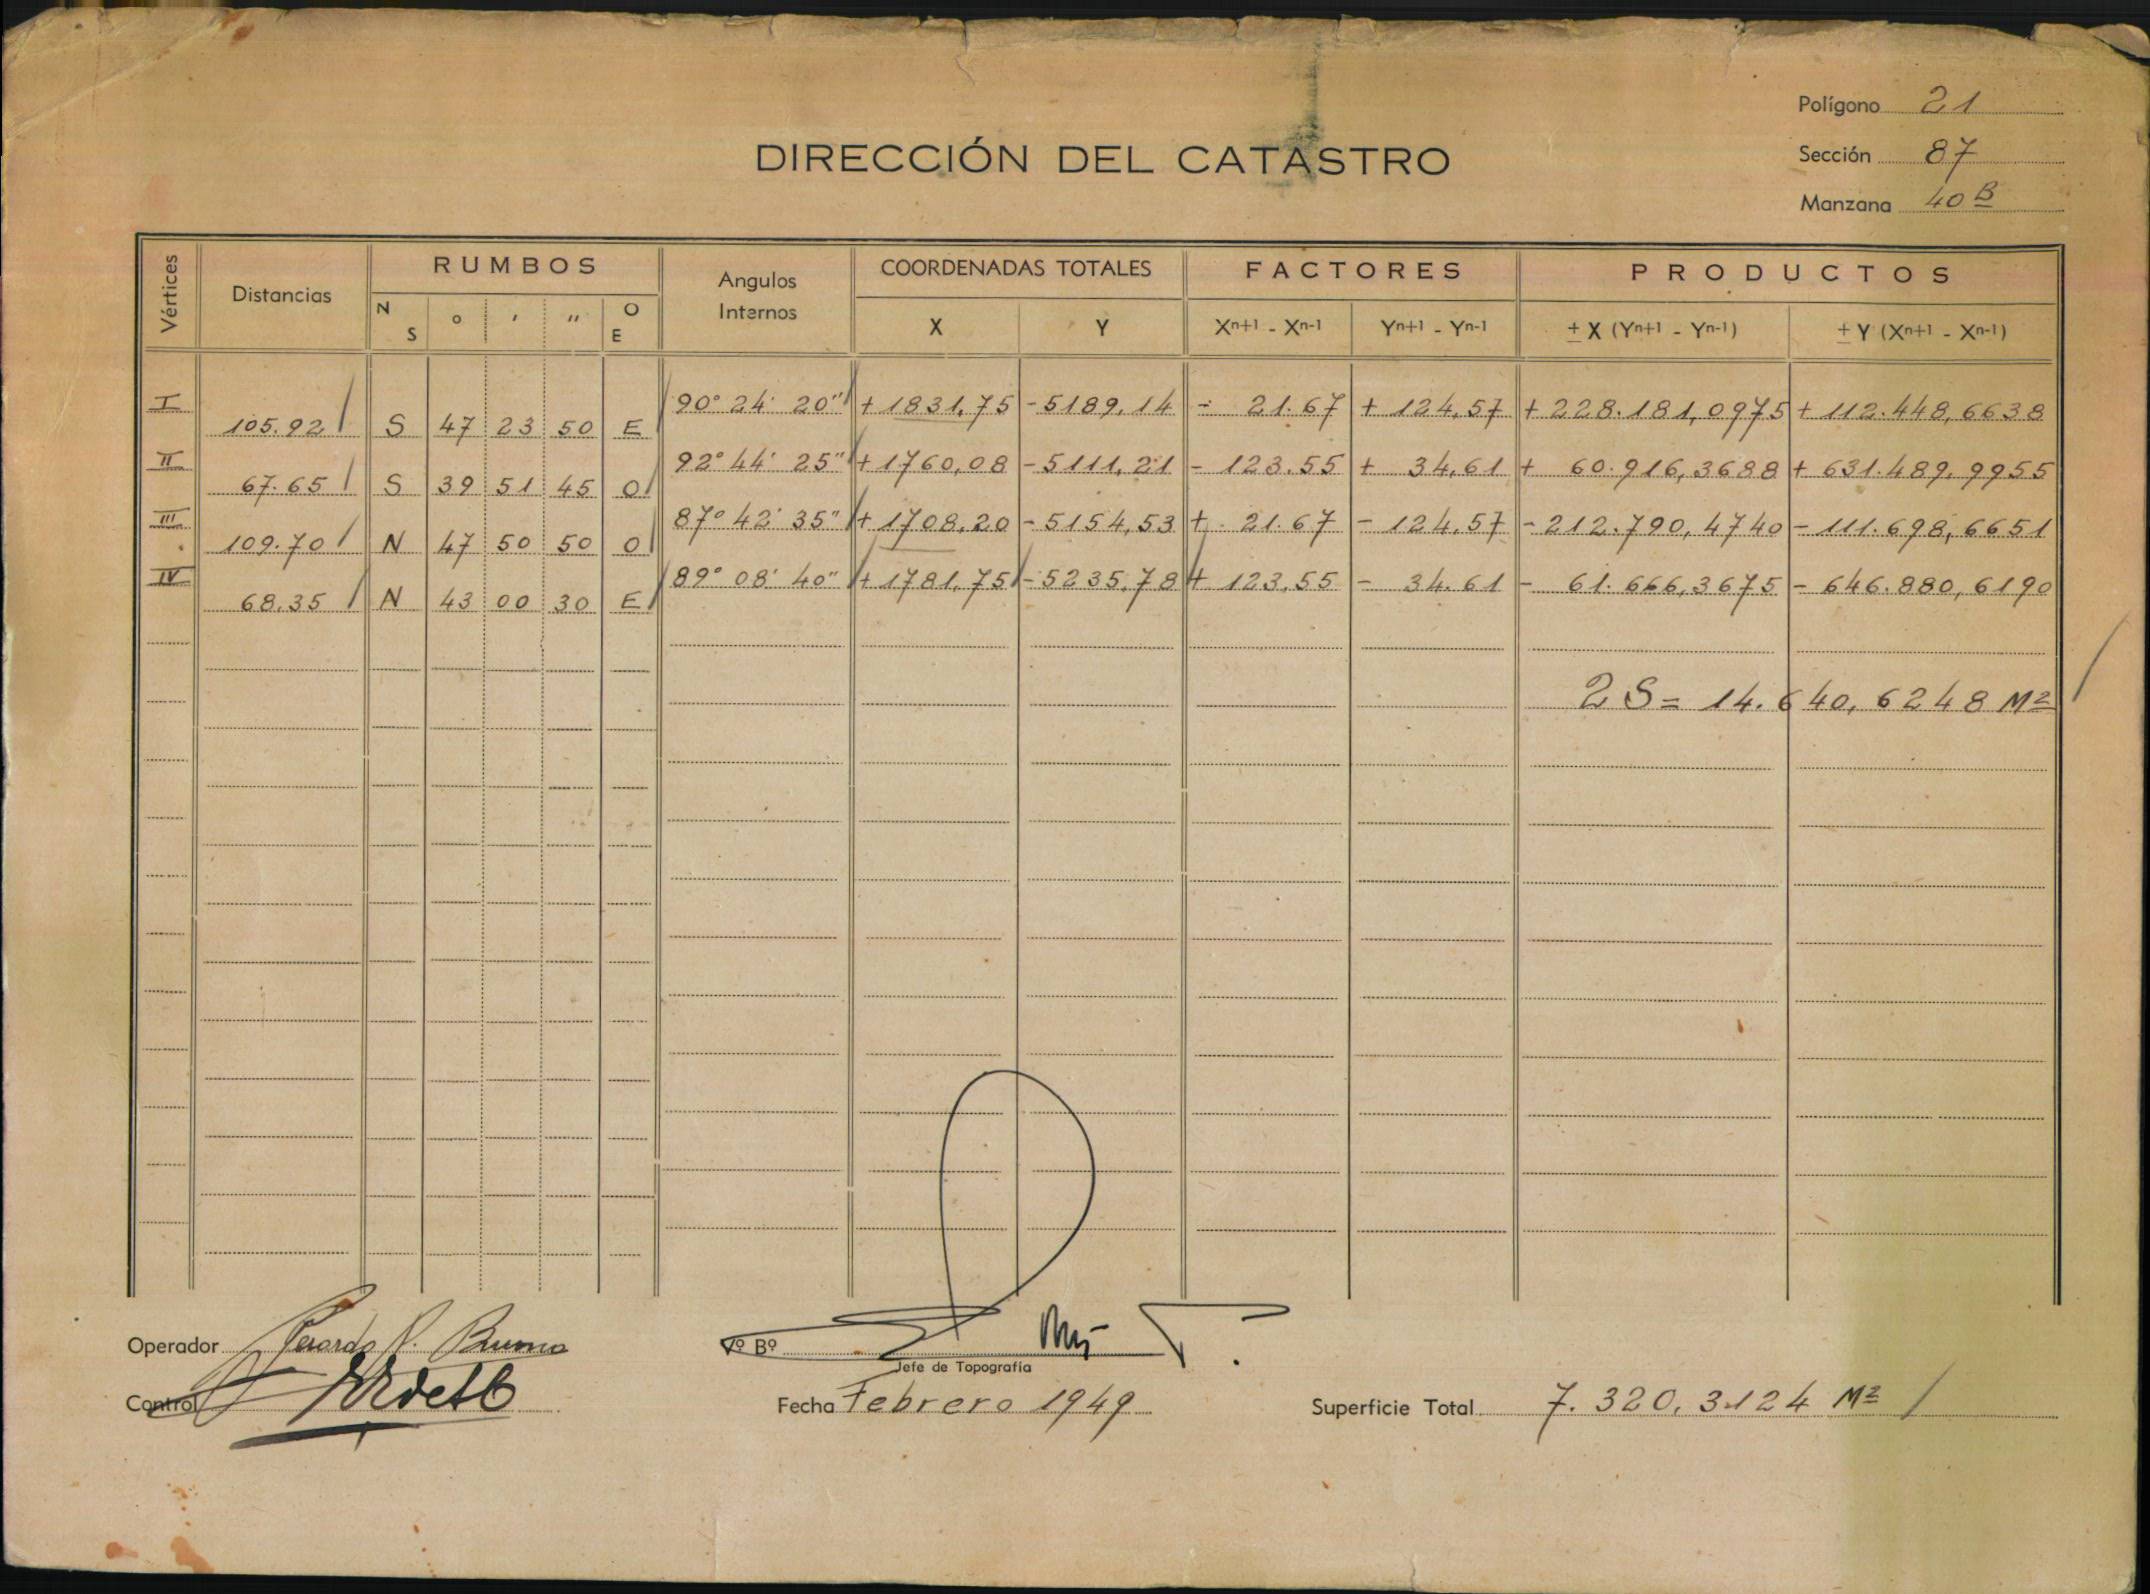 Polígono 21
DIRECCIÓN DEL CATASTRO
Sección 87
Manzana 40 B
Vértices Distancias RUMBOS Angulos Internos COORDENADAS TOTALES FACTORES PRODUCTOS
N S ° ' " O E X Y Xn+1 - Xn-1 Yn+1 - Yn-1 ± X (Yn+1 - Yn-1) ± Y (Xn+1 - Xn-1)
I 90° 24' 20" +1831,75 -5189,14 - 21.67 + 124,57 +228.181,0975 +112.448,6638
105.92 S 47 23 50 E
II 92° 44' 25" +1760,08 -5111,21 - 123.55 + 34,61 + 60.916,3688 +631.489,9955
67.65 S 39 51 45 O
III 87° 42' 35" +1708,20 -5154,53 + 21.67 - 124,57 -212.790,4740 -111.698,6651
109.70 N 47 50 50 O
IV 89° 08' 40" +1781,75 -5235,78 + 123,55 - 34.61 - 61.666,3675 - 646.880,6190
68.35 N 43 00 30 E
2 S = 14.640,6248 M2
Operador Gerardo
Vº Bº
Jefe de Topografía
Control
Fecha Febrero 1949
Superficie Total 7.320,3124 M2